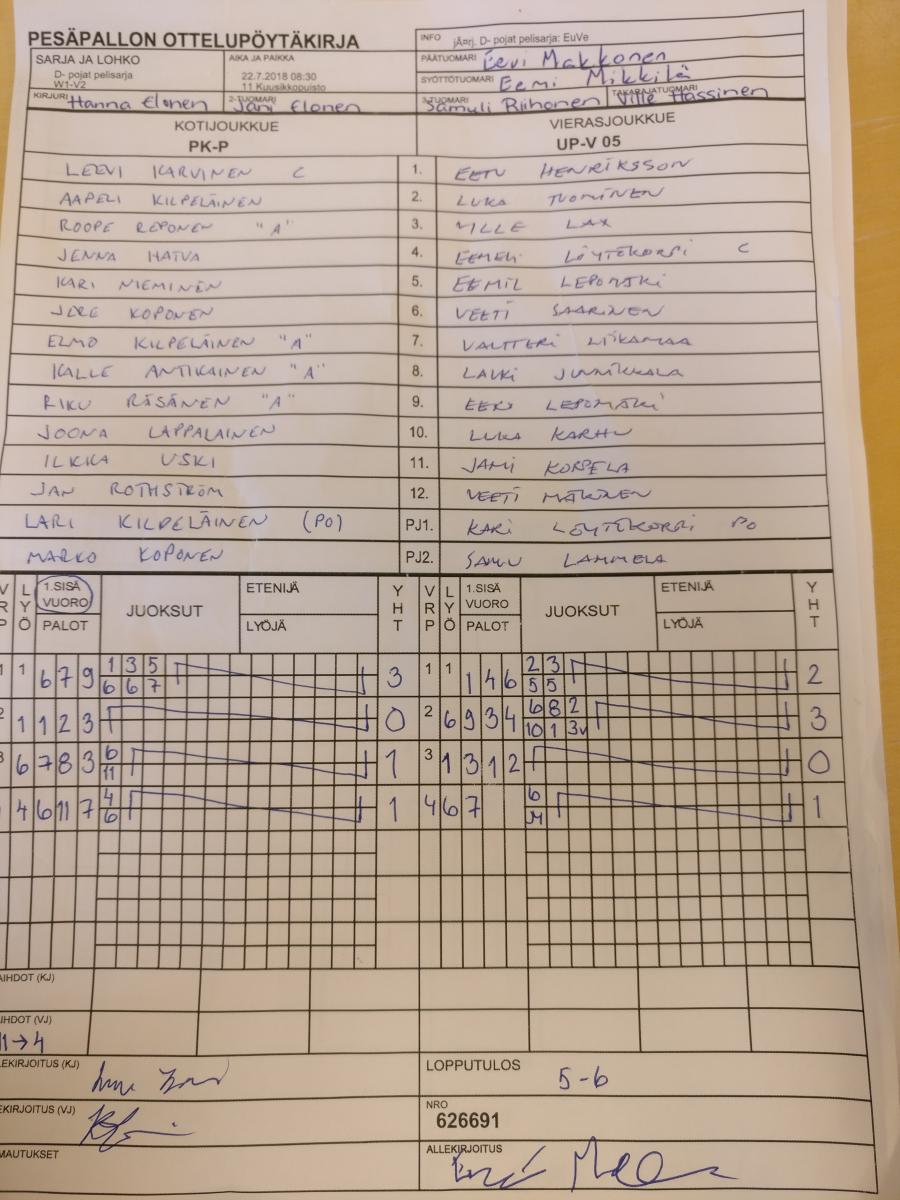 PESÄPALLON OTTELUPÖYTÄKIRJA
INFO jÄ¤rj. D- pojat pelisarja: EuVe
SARJA JA LOHKO
D- pojat pelisarja
W1-V2
AIKA JA PAIKKA
22.7.2018 08:30
11 Kuusikkopuisto
PÄÄTUOMARI Eevi Makkonen
SYÖTTÖTUOMARI Eemi Mikkilä
KIRJURI Hanna Elonen
2-TUOMARI Jani Elonen
3-TUOMARI Samuli Riihonen
TAKARAJATUOMARI Ville Hassinen
KOTIJOUKKUE VIERASJOUKKUE
PK-P UP-V 05
LEEVI KARVINEN C 1. EETU HENRIKSSON
AAPELI KILPELÄINEN 2. LUKA TUOMINEN
ROOPE REPONEN "A" 3. VILLE LAX
JENNA HATVA 4. EEMELI LÖYTÖKORPI C
KARI NIEMINEN 5. EEMIL LEPOMÄKI
JERE KOPONEN 6. VEETI SAARINEN
ELMO KILPELÄINEN "A" 7. VALTTERI LIIKAMAA
KALLE ANTIKAINEN "A" 8. LAURI JUNIKKALA
RIKU RÄSÄNEN "A" 9. EERO LEPOMÄKI
JOONA LAPPALAINEN 10. LUKA KARHU
ILKKA USKI 11. JAMI KORPELA
JAN ROTHSTRÖM 12. VEETI MÄKINEN
LARI KILPELÄINEN (PO) PJ1. KARI LÖYTÖKORPI PO
MARKO KOPONEN PJ2. SAMU LAMMELA
VRP LYÖ 1.SISÄ VUORO PALOT JUOKSUT ETENIJÄ LYÖJÄ YHT VRP LYÖ 1.SISÄ VUORO PALOT JUOKSUT ETENIJÄ LYÖJÄ YHT
1 3 5 2 3
1 1 6 7 9 3 1 1 1 4 6 2
6 6 7 5 5
6 8 2
2 1 1 2 3 0 2 6 9 3 4 3
10 1 3v
6
3 6 7 8 3 1 3 1 3 1 2 0
11
4 6
4 6 11 7 1 4 6 7 1
6 M
AIHDOT (KJ)
AIHDOT (VJ)
11→4
LEKIRJOITUS (KJ)
LOPPUTULOS 5-6
EKIRJOITUS (VJ)
NRO
626691
MAUTUKSET
ALLEKIRJOITUS